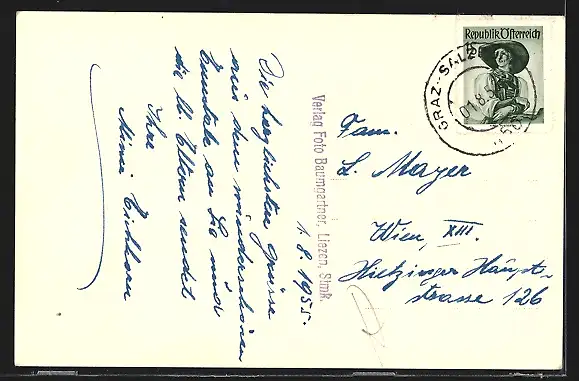 1. 8. 1955.
Die herzlichsten Grüsse
aus dem wunderschönen
Ennstale an Sie und
die lb. Eltern sendet
Ihre
Mimi Eichhorn
Verlag Foto Baumgartner, Liezen, Stmk.
Republik Österreich
GRAZ-SALZB
01.8.5
Fam.
L. Mayer
Wien, XIII.
Hietzinger Haupt-
strasse 126